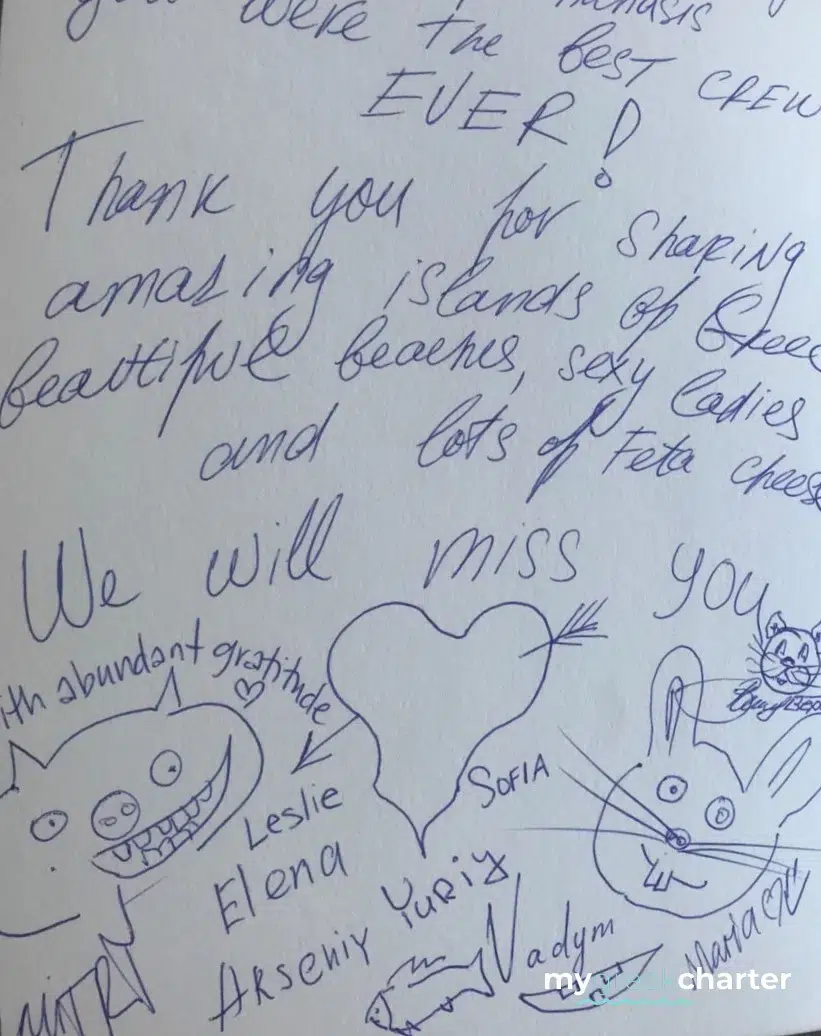 were the best CREW
EVER!
Thank you for sharing
amazing islands of Greec
beautiful beaches, sexy ladies
and lots of Feta chees
We will miss you
ith abundant gratitude
SOFIA
Leslie
Elena
Arseniy Yuriy
Vadym
Maria
mygreekcharter